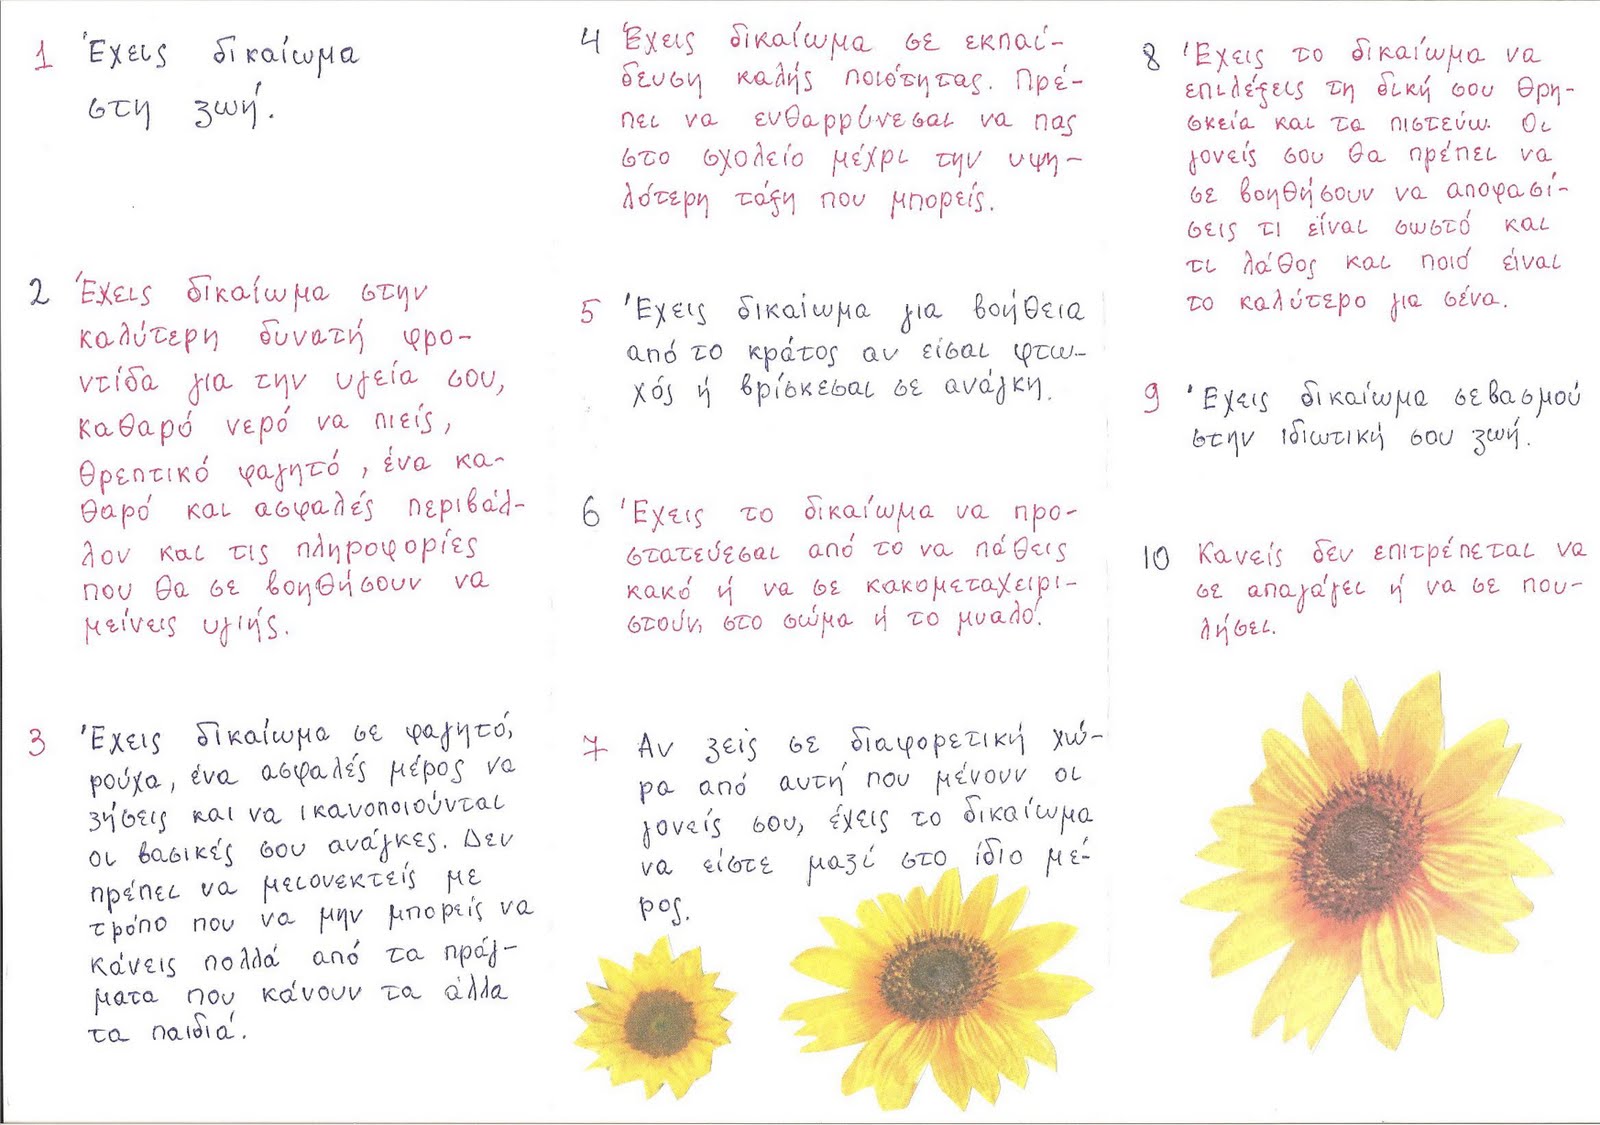 1 Έχεις δικαίωμα
στη ζωή.
2 Έχεις δικαίωμα στην
καλύτερη δυνατή φρο-
ντίδα για την υγεία σου,
καθαρό νερό να πιείς,
θρεπτικό φαγητό, ένα κα-
θαρό και ασφαλές περιβάλ-
λον και τις πληροφορίες
που θα σε βοηθήσουν να
μείνεις υγιής.
3 Έχεις δικαίωμα σε φαγητό,
ρούχα, ένα ασφαλές μέρος να
ζήσεις και να ικανοποιούνται
οι βασικές σου ανάγκες. Δεν
πρέπει να μειονεκτείς με
τρόπο που να μην μπορείς να
κάνεις πολλά από τα πράγ-
ματα που κάνουν τα άλλα
τα παιδιά.
4 Έχεις δικαίωμα σε εκπαί-
δευση καλής ποιότητας. Πρέ-
πει να ευθαρρύνεσαι να πας
στο σχολείο μέχρι την υψη-
λότερη τάξη που μπορείς.
5 Έχεις δικαίωμα για βοήθεια
από το κράτος αν είσαι φτω-
χός ή βρίσκεσαι σε ανάγκη.
6 Έχεις το δικαίωμα να προ-
στατεύεσαι από το να πάθεις
κακό ή να σε κακομεταχειρι-
στούν, στο σώμα ή το μυαλό.
7 Αν ζεις σε διαφορετική χώ-
ρα από αυτή που μένουν οι
γονείς σου, έχεις το δικαίωμα
να είστε μαζί στο ίδιο μέ-
ρος.
8 Έχεις το δικαίωμα να
επιλέξεις τη δική σου θρη-
σκεία και τα πιστεύω. Οι
γονείς σου θα πρέπει να
σε βοηθήσουν να αποφασί-
σεις τι είναι σωστό και
τι λάθος και ποιό είναι
το καλύτερο για σένα.
9 Έχεις δικαίωμα σεβασμού
στην ιδιωτική σου ζωή.
10 Κανείς δεν επιτρέπεται να
σε απαγάγει ή να σε που-
λήσει.